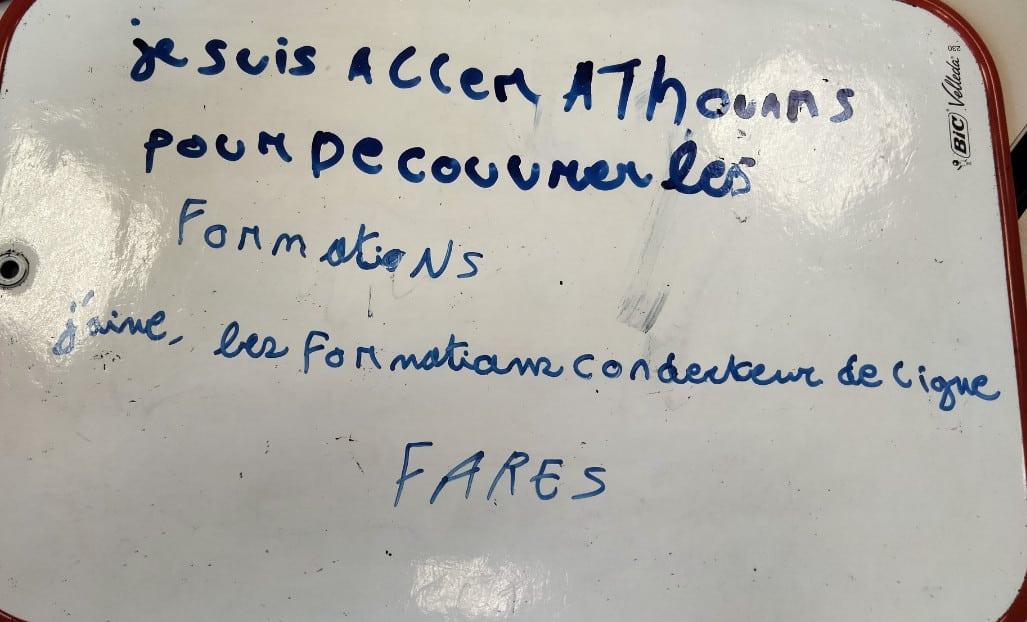 je suis Aller A Thouars
pour Decouvrer les
Formations
j'aime, les Formations conducteur de Ligne
FARES
BIC Velleda